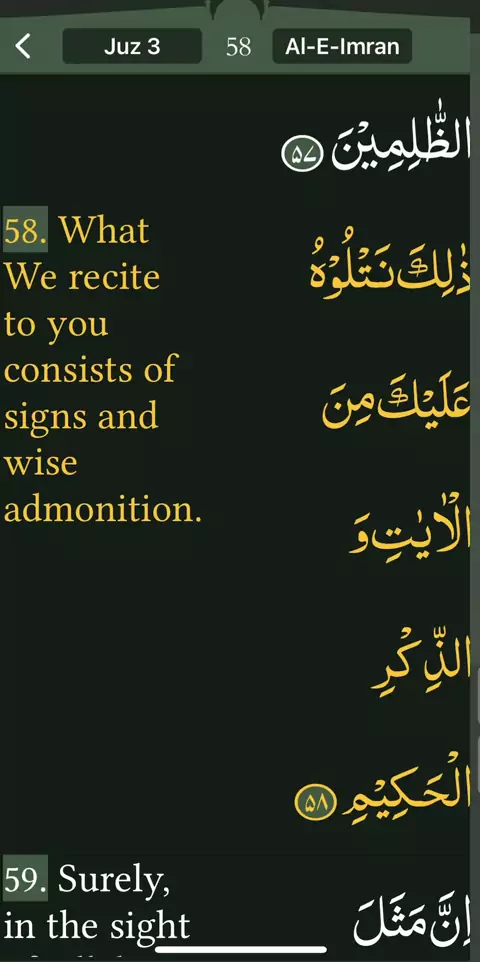 Juz 3 58 Al-E-Imran
الظّٰلِمِيْنَ ۵۷
58. What
We recite
to you
consists of
signs and
wise
admonition.
ذٰلِكَ نَتْلُوْهُ
عَلَيْكَ مِنَ
الْاٰيٰتِ وَ
الذِّكْرِ
الْحَكِيْمِ ۵۸
59. Surely,
in the sight
اِنَّ مَثَلَ